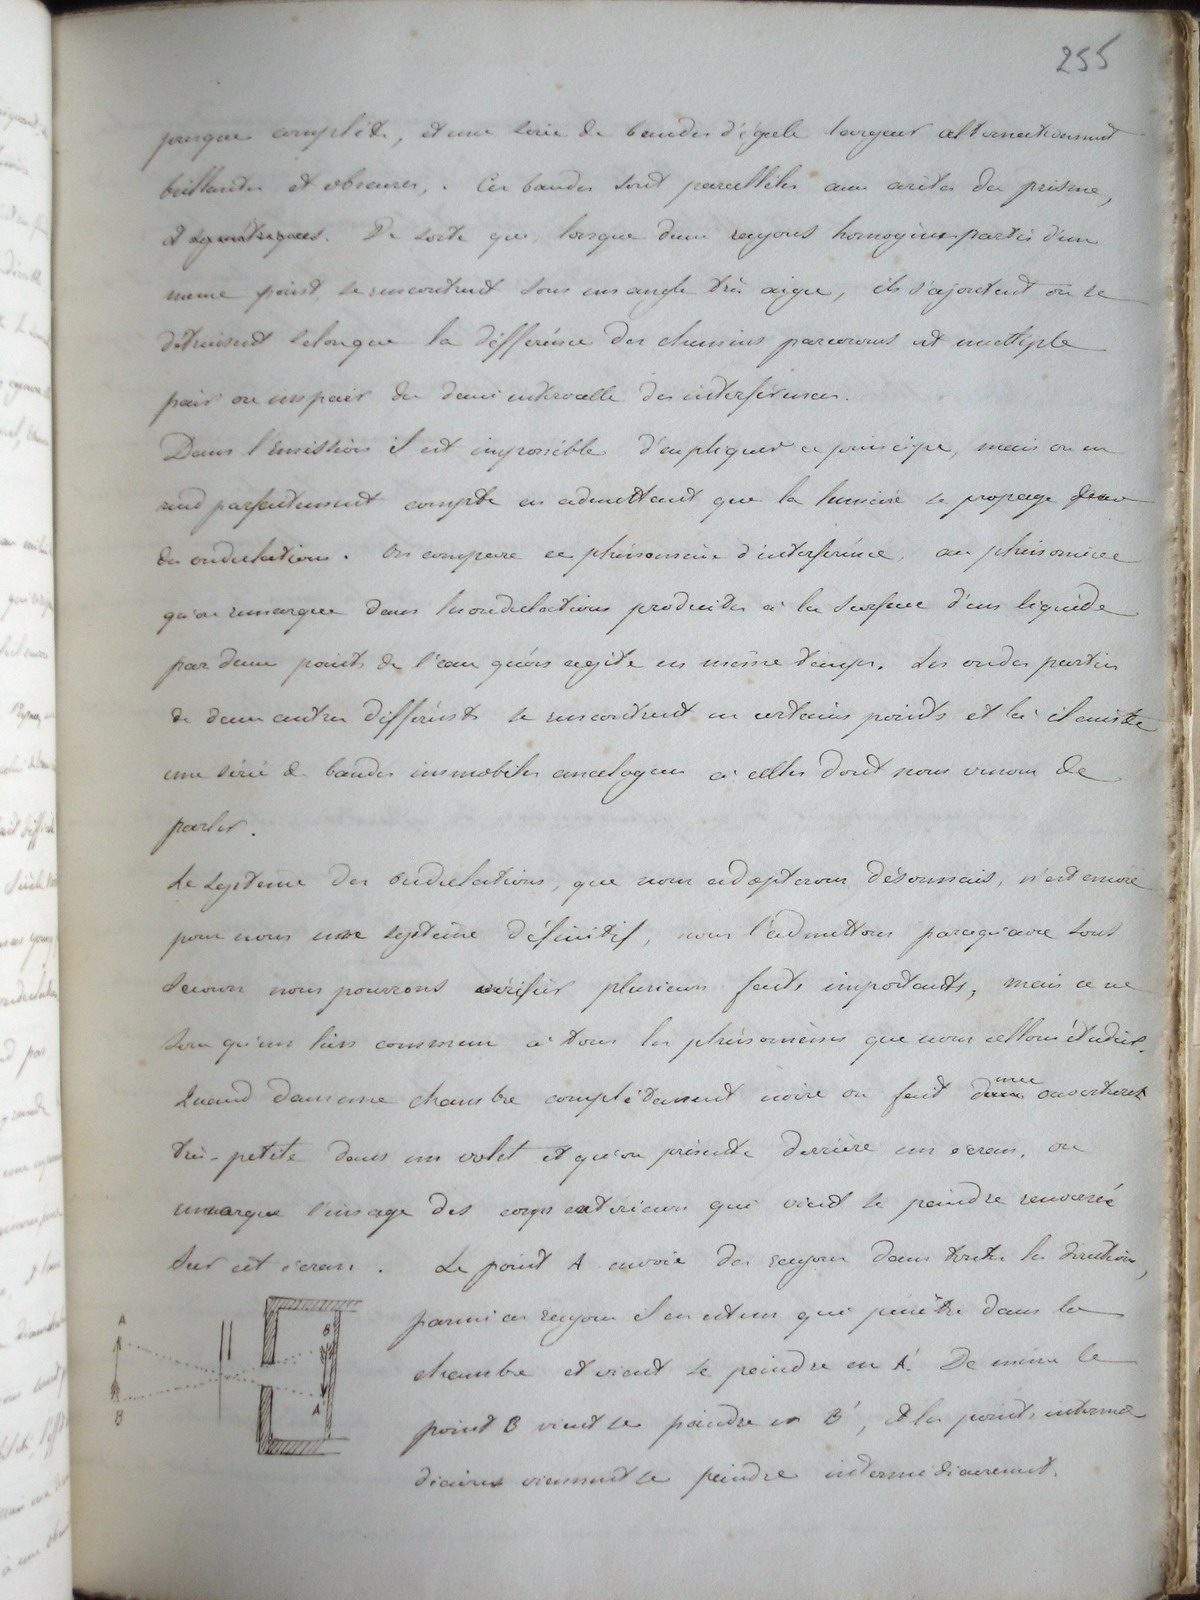 255
presque complète, et une série de bandes d'égale largeur alternativement
brillantes et obscures, . Ces bandes sont parallèles aux arites du prisme,
et symétriques. De sorte que, lorsque deux rayons homogènes partis d'un
meme point, se rencontrent sous un angle très aigu, ils s'ajoutent ou se
détruisent selon que la différence des chemins parcourus est multiple
pair ou impair du demi intervalle des interférences.
Dans l'Emission il est impossible d'expliquer ce principe, mais on en
rend parfaitement compte en admettant que la lumière se propage
des ondulations. On compare ce phénomène d'interférence, au phénomène
qu'on remarque dans les ondulations produites à la surface d'un liquide
par deux points de l'eau qu'on agite en même temps. Les ondes parties
de deux centres différents se rencontrent en certains points et là il existe
une série de bandes immobiles analogues à celles dont nous venons de
parler.
Le système des ondulations, que nous adopterons désormais, n'est encore
pour nous un système définitif, nous l'admettons parcequ'avec son
secours nous pourrons vérifier plusieurs faits importants, mais ce ne
sera qu'un lien commun à tous les phénomènes que nous allons étudier.
Quand dans une chambre complètement noire on fait une ouverture
très-petite dans un volet et qu'on présente derrière un écran, on
remarque l'image des corps extérieurs qui vient se peindre renversée
sur cet écran. Le point A envoie des rayons dans toutes les directions,
parmi ces rayons il en est un qui pénètre dans la
chambre et vient se peindre en A'. De même le
point B vient se peindre en B', et les points interme
diaires viennent se peindre intermédiairement.
A
B
B'
A'